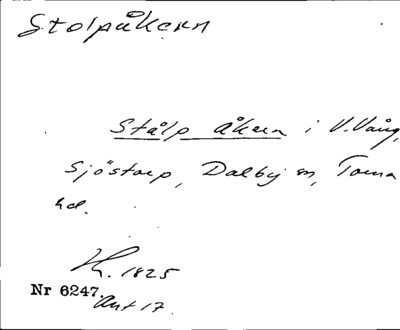 Stolpåkern
Stålp åkern i V. Vång,
Sjöstorp, Dalby sn, Torna
hd.
H. 1825
Nr 6247.
Akt 17.